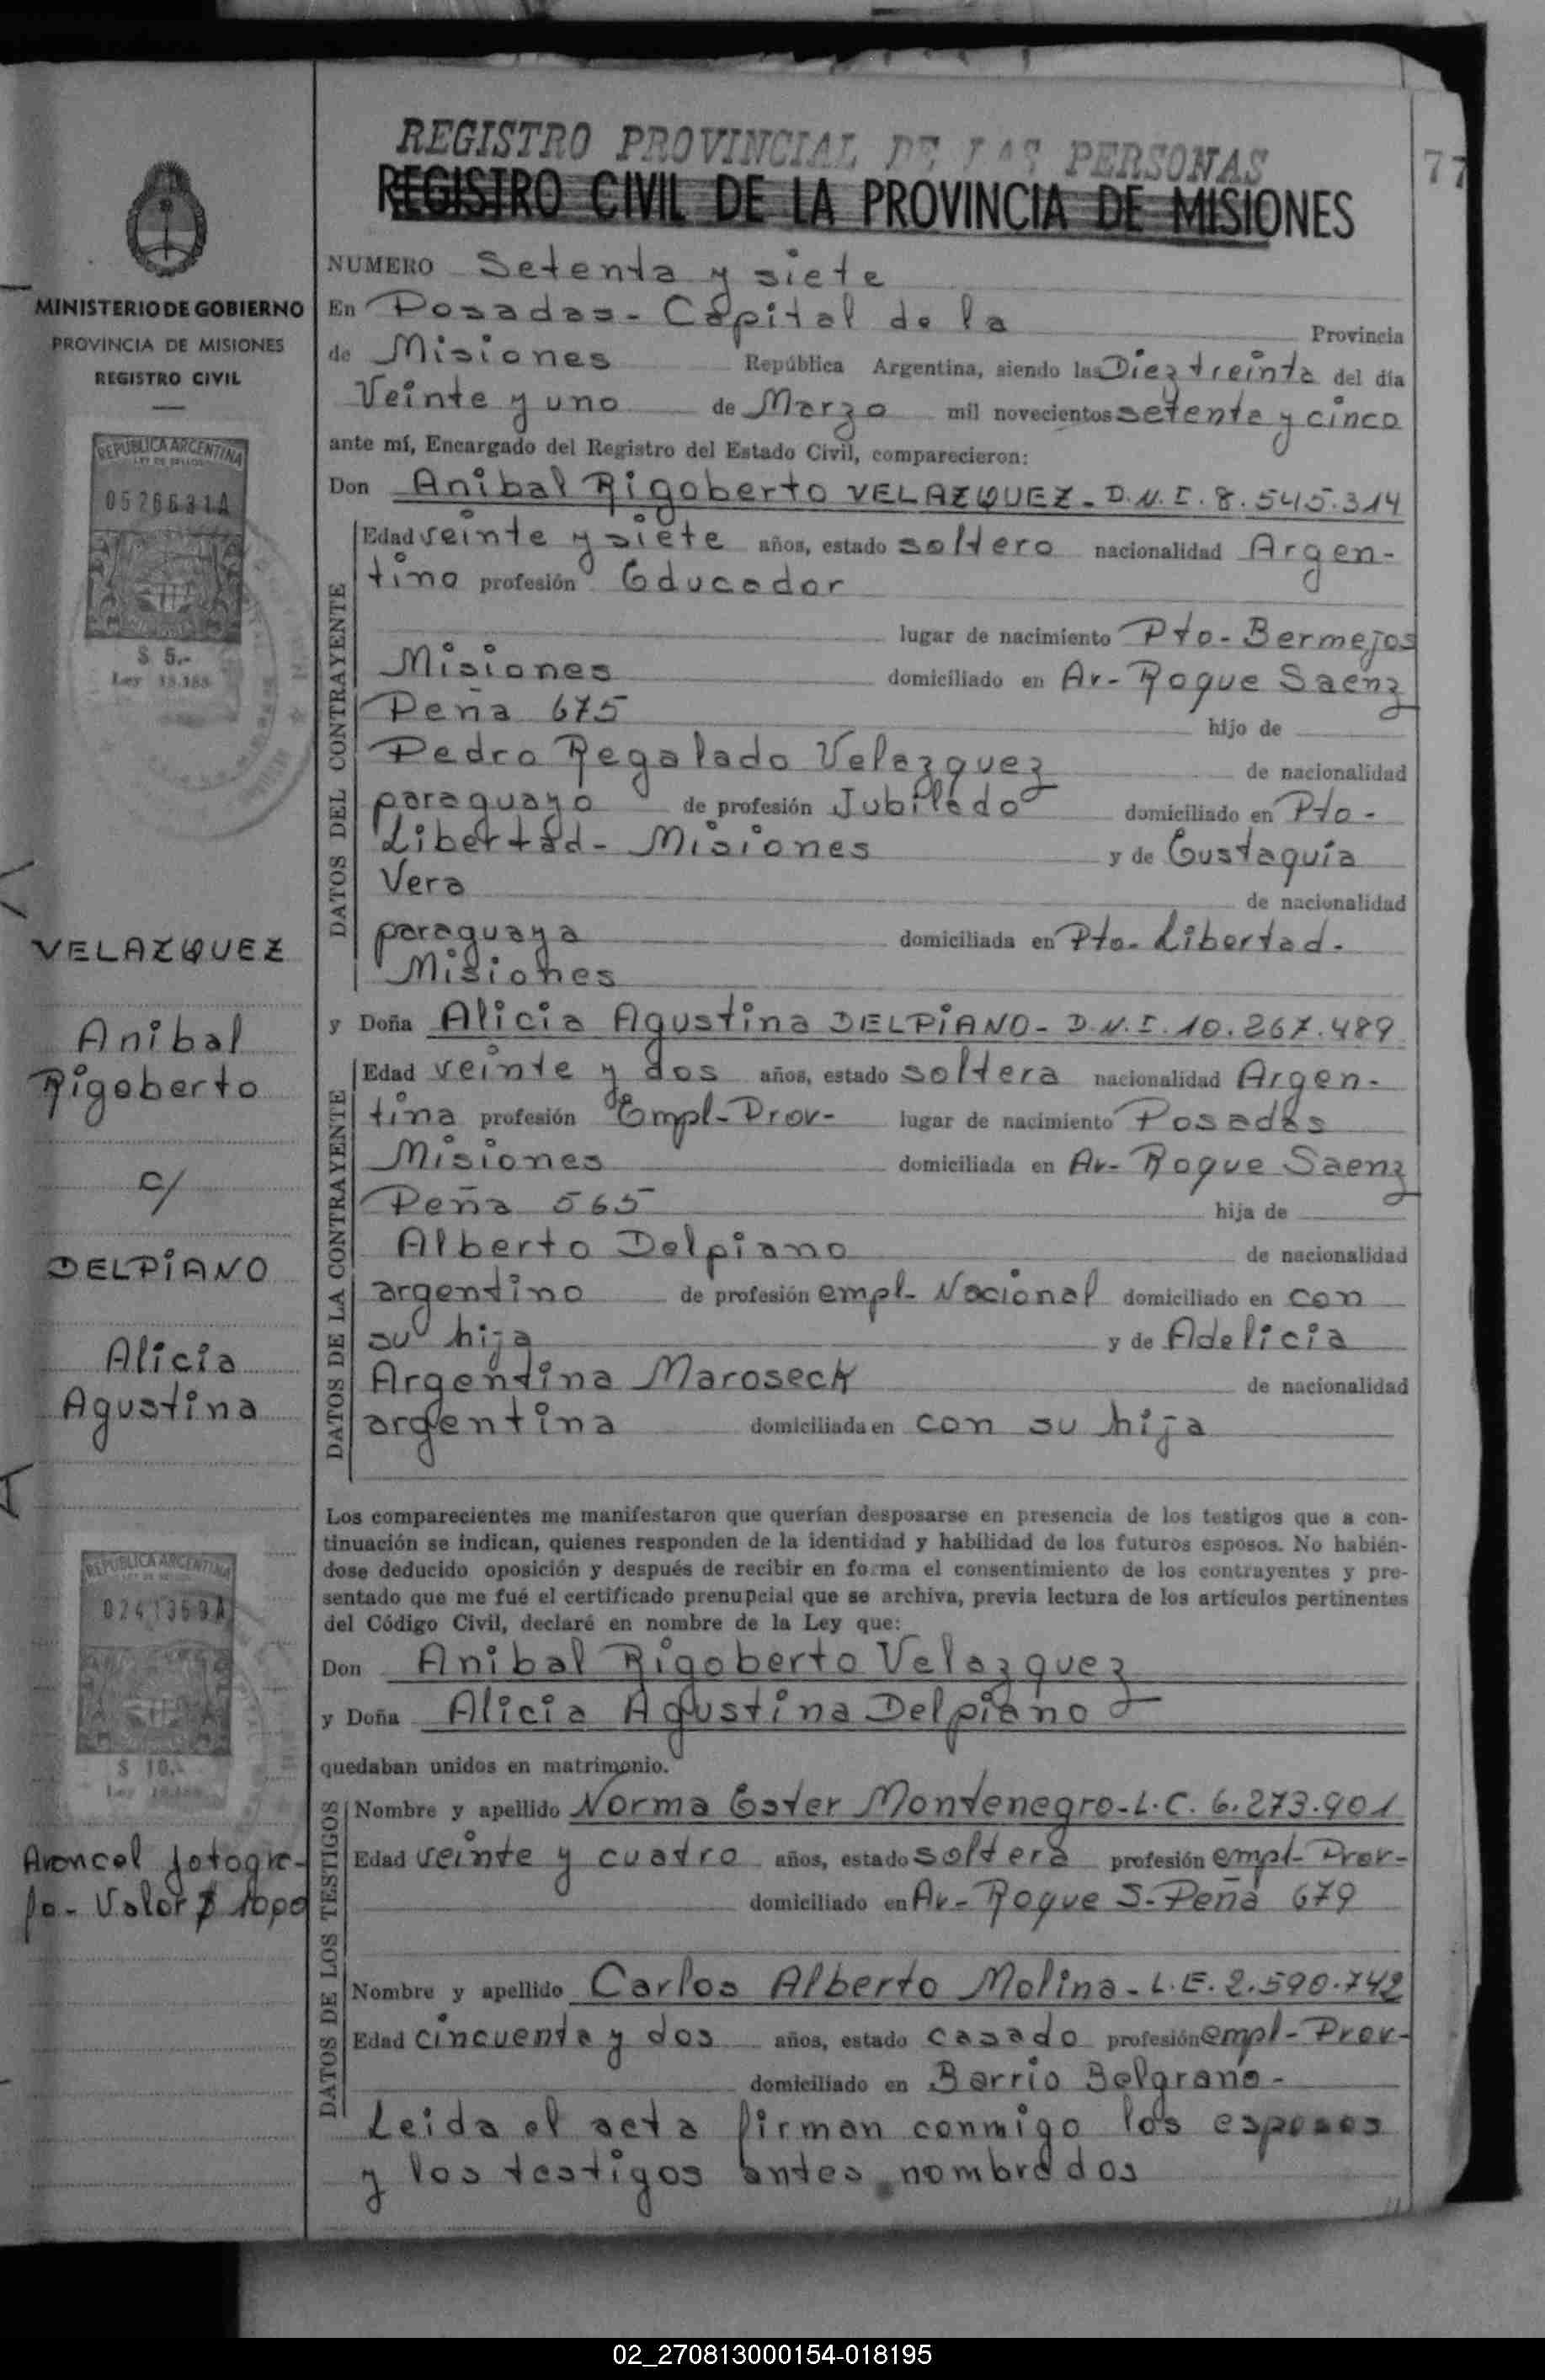 REGISTRO PROVINCIAL DE LAS PERSONAS
REGISTRO CIVIL DE LA PROVINCIA DE MISIONES
77
MINISTERIO DE GOBIERNO
PROVINCIA DE MISIONES
REGISTRO CIVIL
REPUBLICA ARGENTINA
LEY DE SELLOS
0526631A
$ 5.-
VELAZQUEZ
Anibal
Rigoberto
c/
DELPIANO
Alicia
Agustina
REPUBLICA ARGENTINA
0241369A
$ 10.-
Arancel fotogra-
fo - Valor $
NUMERO Setenta y siete
En Posadas - Capital de la Provincia
de Misiones República Argentina, siendo las Diez treinta del día
Veinte y uno de Marzo mil novecientos setenta y cinco
ante mí, Encargado del Registro del Estado Civil, comparecieron:
Don Anibal Rigoberto VELAZQUEZ - D.N.I. 8.545.314
DATOS DEL CONTRAYENTE
Edad veinte y siete años, estado soltero nacionalidad Argen-
tino profesión Educador
lugar de nacimiento Pto - Bermejos
Misiones domiciliado en Av - Roque Saenz
Peña 675 hijo de
Pedro Regalado Velazquez de nacionalidad
paraguayo de profesión Jubilado domiciliado en Pto -
Libertad - Misiones y de Eustaquia
Vera de nacionalidad
paraguaya domiciliada en Pto - Libertad -
Misiones
y Doña Alicia Agustina DELPIANO - D.N.I. 10.267.489
DATOS DE LA CONTRAYENTE
Edad veinte y dos años, estado soltera nacionalidad Argen-
tina profesión Empl - Prov - lugar de nacimiento Posadas
Misiones domiciliada en Av - Roque Saenz
Peña 565 hija de
Alberto Delpiano de nacionalidad
argentino de profesión empl - Nacional domiciliado en con
su hija y de Adelicia
Argentina Maroseck de nacionalidad
argentina domiciliada en con su hija
Los comparecientes me manifestaron que querían desposarse en presencia de los testigos que a con-
tinuación se indican, quienes responden de la identidad y habilidad de los futuros esposos. No habién-
dose deducido oposición y después de recibir en forma el consentimiento de los contrayentes y pre-
sentado que me fué el certificado prenupcial que se archiva, previa lectura de los artículos pertinentes
del Código Civil, declaré en nombre de la Ley que:
Don Anibal Rigoberto Velazquez
y Doña Alicia Agustina Delpiano
quedaban unidos en matrimonio.
DATOS DE LOS TESTIGOS
Nombre y apellido Norma Ester Montenegro - L.C. 6.273.901
Edad veinte y cuatro años, estado soltera profesión empl - Prov -
domiciliado en Av - Roque S - Peña 679
Nombre y apellido Carlos Alberto Molina - L.E. 2.590.742
Edad cincuenta y dos años, estado casado profesión empl - Prov -
domiciliado en Barrio Belgrano -
Leida el acta firman conmigo los esposos
y los testigos antes nombrados
02_270813000154-018195